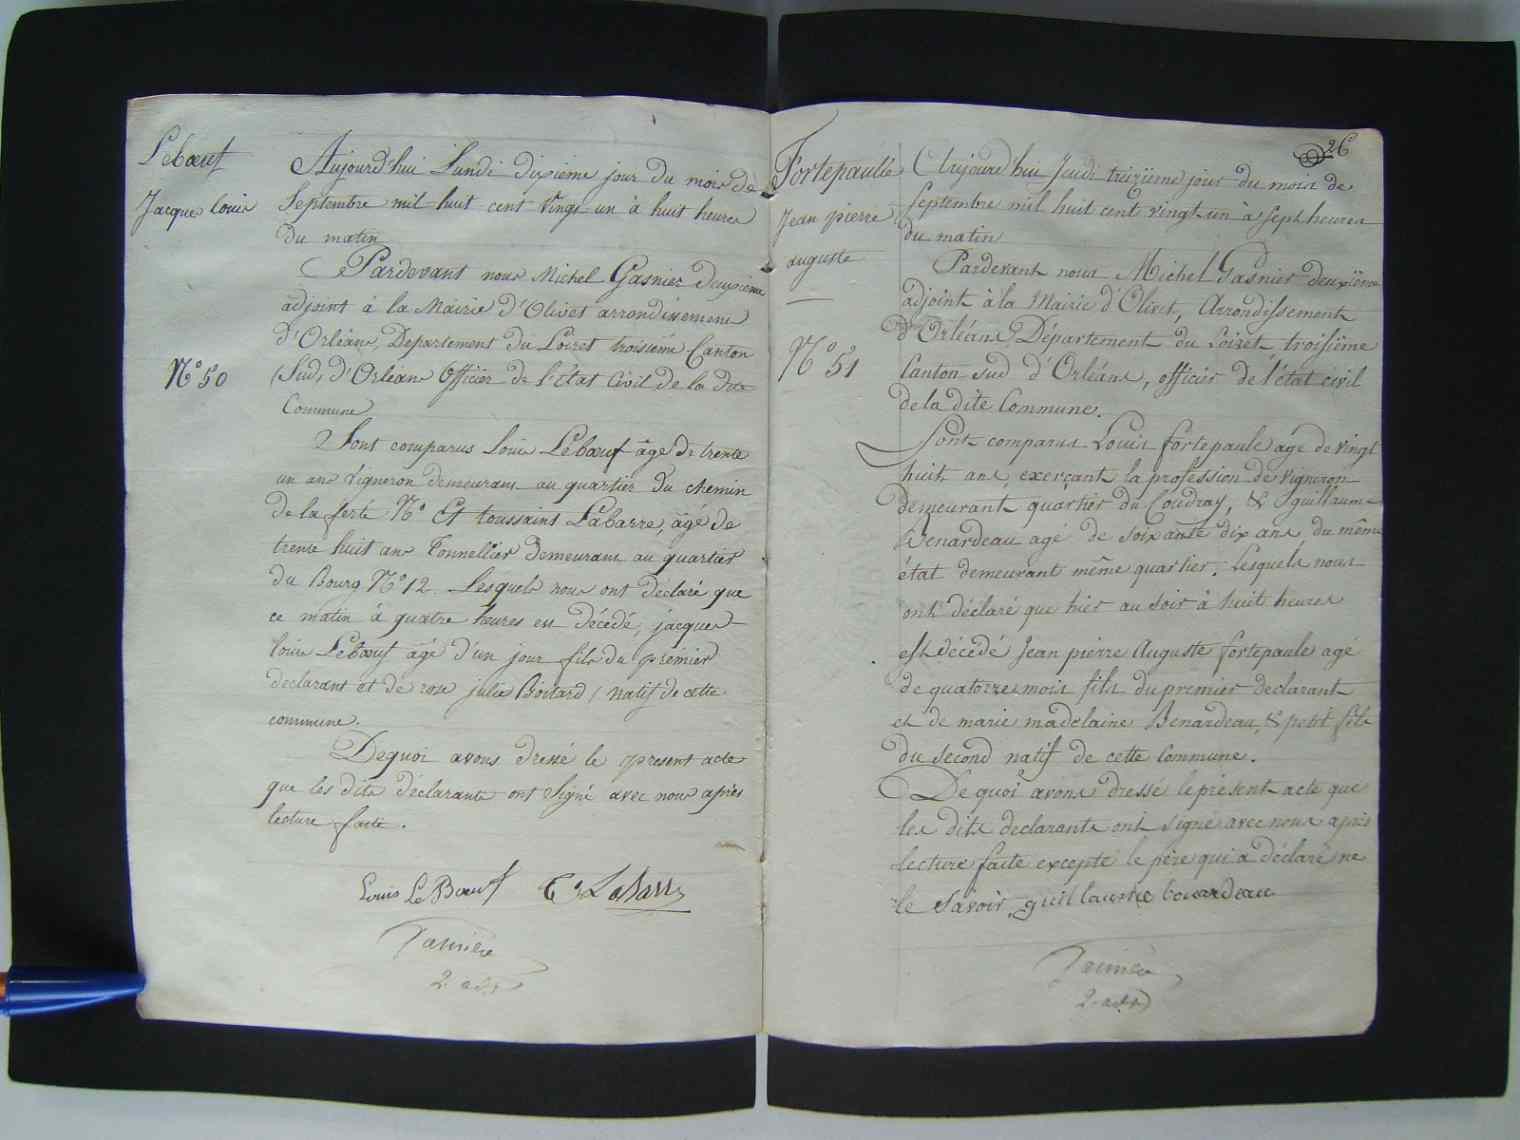 Lebœuf
Jacque Louis
N° 50
Aujourd'hui Lundi dixième jour du mois de
Septembre mil huit cent vingt un à huit heures
du matin
Pardevant nous Michel Gasnier deuxième
adjoint à la Mairie d'Olivet arrondissement
d'Orléans, Departement du Loiret troisième Canton
Sud, d'Orléans Officier de l'état Civil de la dite
Commune
Sont comparus Louis Lebœuf âgé de trente
un ans vigneron demeurant au quartier du chemin
de la ferté N° Et toussaint Labarre, âgé de
trente huit ans Tonnellier demeurant au quartier
du Bourg N° 12. Lesquels nous ont déclaré que
ce matin à quatre heures est décédé, jacques
louis Lebœuf âgé d'un jour fils du premier
declarant et de rose julie Boitard / natif de cette
commune.
Dequoi avons dressé le present acte
que les dits déclarants ont signé avec nous après
lecture faite.
Louis Le Bœuf T. Labarre
2. adj
26
Fortepaulle
Jean pierre
auguste
N° 51
Aujourd'hui Jeudi treizième jour du mois de
Septembre mil huit cent vingt-un à sept heures
du matin
Pardevant nous Michel Gasnier deuxième
adjoint à la Mairie d'Olivet, Arrondissement
d'Orléans, Département du Loiret troisième
Canton sud d'Orléans, officier de l'état civil
de la dite Commune.
Sont comparus Louis fortepaule agé de vingt
huit ans exerçant la profession de vigneron
demeurant quartier du Coudray, & guillaume
Benardeau agé de soixante dix ans du même
état demeurant même quartier. Lesquels nous
ont déclaré que hier au soir à huit heures
est décédé Jean pierre Auguste fortepaule agé
de quatorze mois fils du premier declarant
et de marie madelaine Benardeau, & petit fils
du second natif de cette Commune.
De quoi avons dressé le présent acte que
les dits declarants ont signé avec nous après
lecture faite excepté le père qui a déclaré ne
le savoir. guillaume bonardeau
2. adj